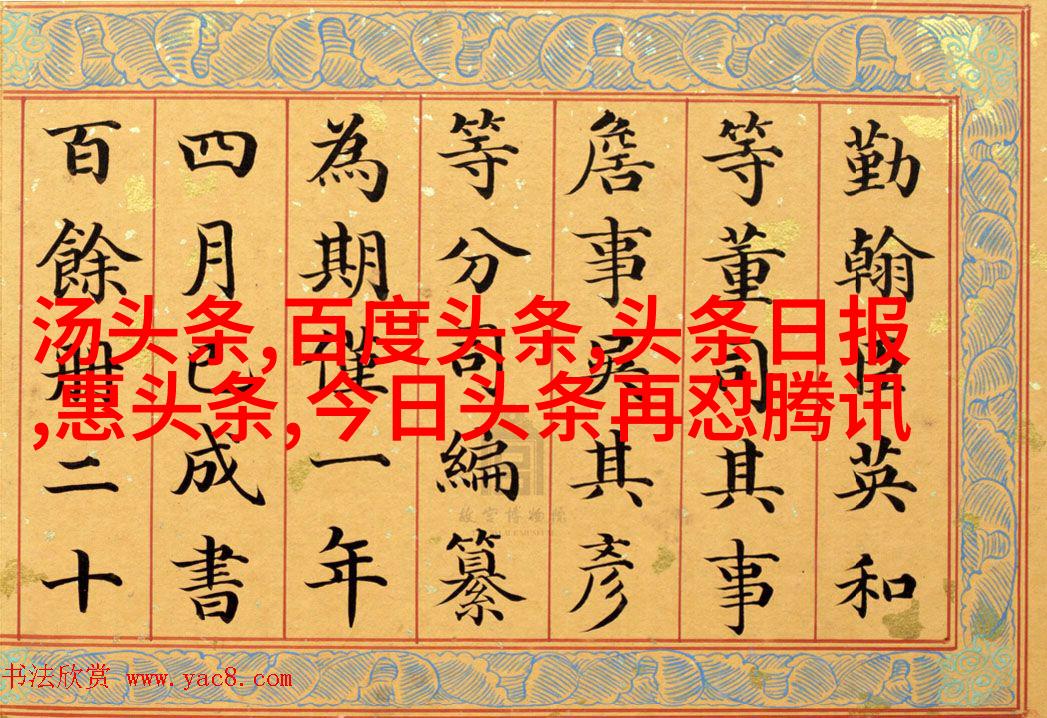 勤翰臣英和
等董司其事
詹事吳其彥
等分司編纂
為期僅一年
四月已成書
百餘冊二十
汤头条,百度头条,头条日报
,惠头条, 今日头条再怼腾讯
故宫博物院
书法欣赏 www.yac8.com